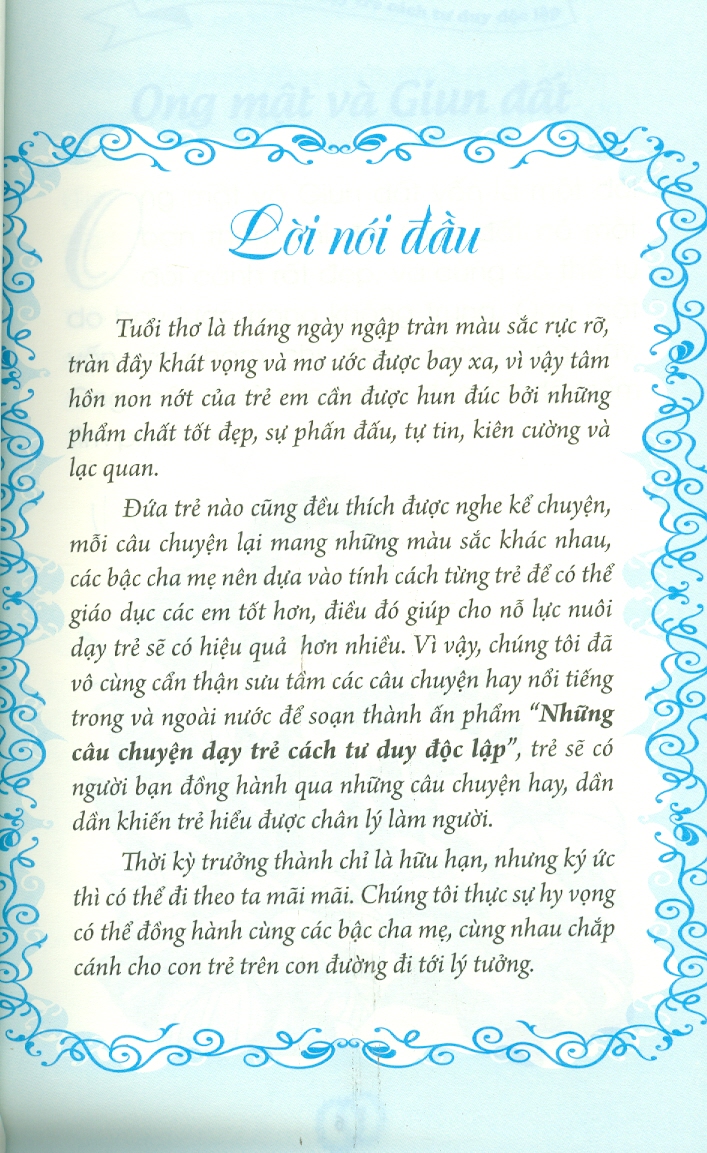 Ong mật và Giun đất
Lời nói đầu
Tuổi thơ là tháng ngày ngập tràn màu sắc rực rỡ,
tràn đầy khát vọng và mơ ước được bay xa, vì vậy tâm
hồn non nớt của trẻ em cần được hun đúc bởi những
phẩm chất tốt đẹp, sự phấn đấu, tự tin, kiên cường và
lạc quan.
Đứa trẻ nào cũng đều thích được nghe kể chuyện,
mỗi câu chuyện lại mang những màu sắc khác nhau,
các bậc cha mẹ nên dựa vào tính cách từng trẻ để có thể
giáo dục các em tốt hơn, điều đó giúp cho nỗ lực nuôi
dạy trẻ sẽ có hiệu quả hơn nhiều. Vì vậy, chúng tôi đã
vô cùng cẩn thận sưu tầm các câu chuyện hay nổi tiếng
trong và ngoài nước để soạn thành ấn phẩm “Những
câu chuyện dạy trẻ cách tư duy độc lập”, trẻ sẽ có
người bạn đồng hành qua những câu chuyện hay, dần
dần khiến trẻ hiểu được chân lý làm người.
Thời kỳ trưởng thành chỉ là hữu hạn, nhưng ký ức
thì có thể đi theo ta mãi mãi. Chúng tôi thực sự hy vọng
có thể đồng hành cùng các bậc cha mẹ, cùng nhau chắp
cánh cho con trẻ trên con đường đi tới lý tưởng.